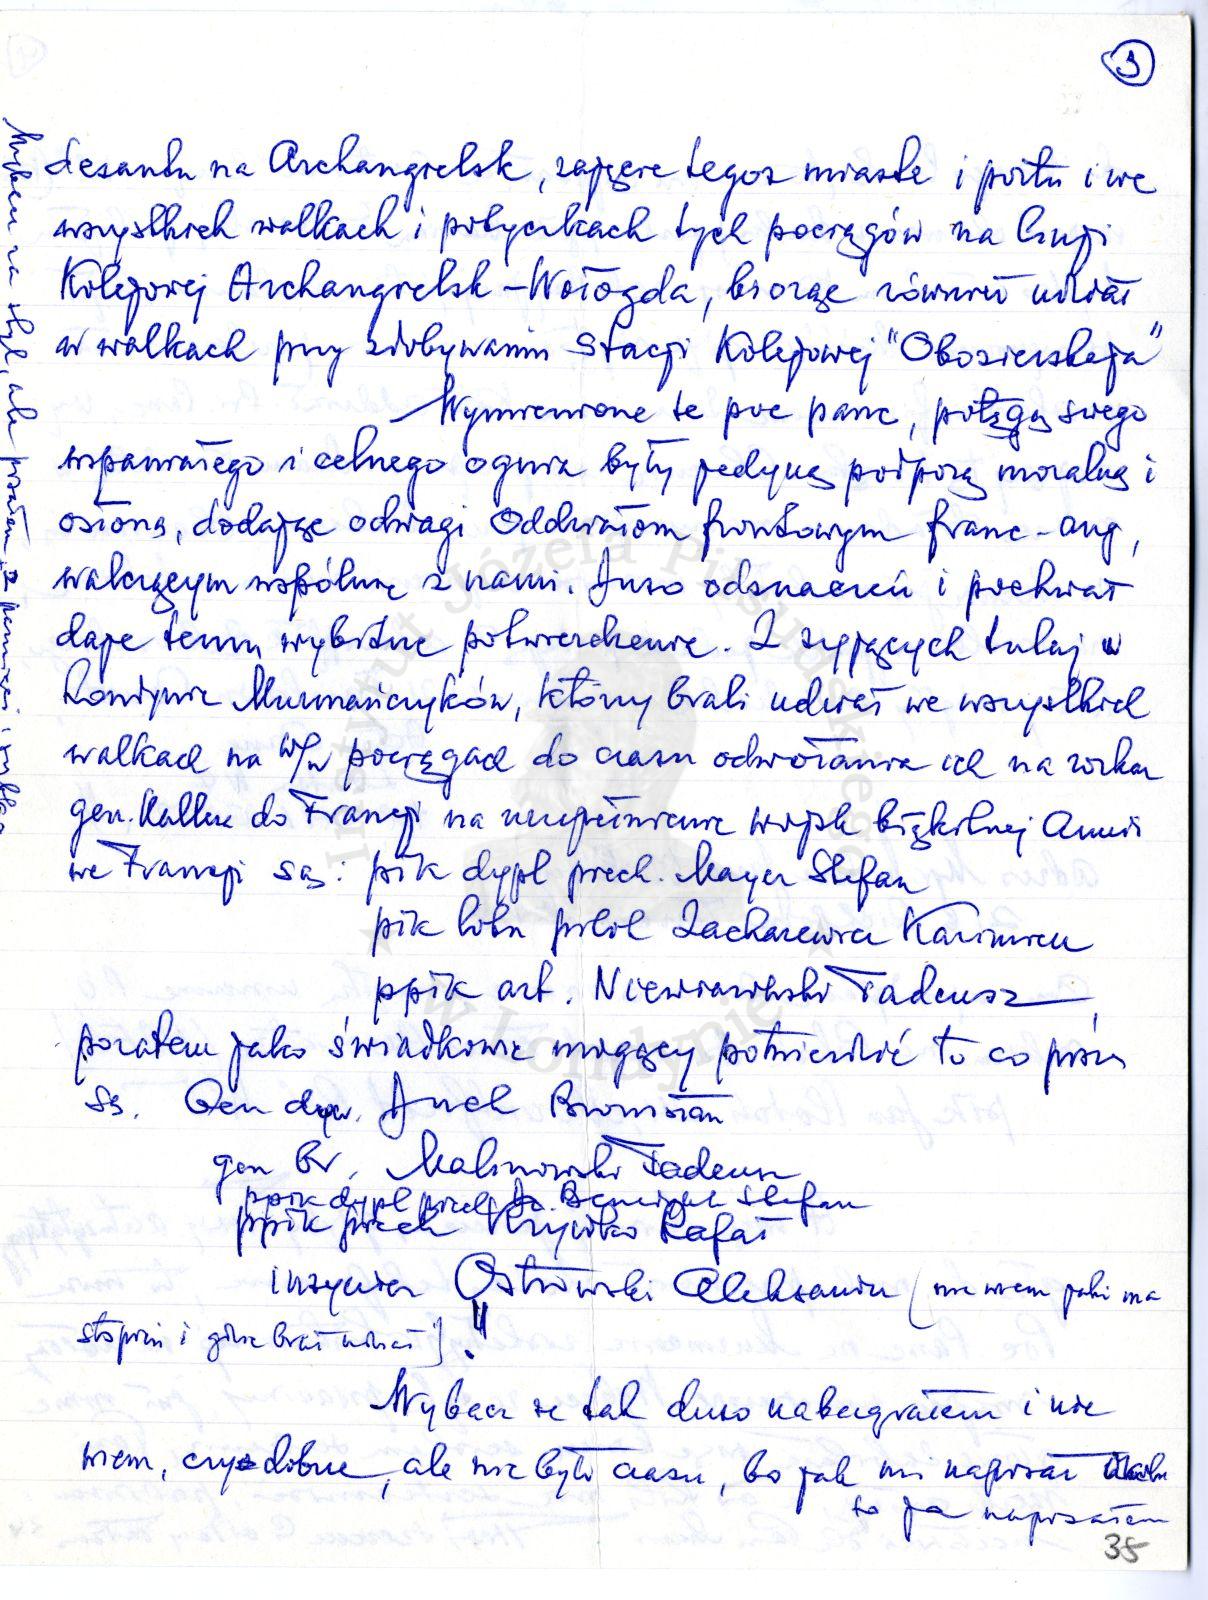 3
desantu na Archangielsk, zajęcie tegoż miasta i portu i we
wszystkich walkach i potyczkach tych pociągów na linji
Kolejowej Archangielsk-Wołogda, biorąc również udział
w walkach przy zdobywaniu Stacji Kolejowej "Obozierskaja"
Wymienione te poc panc, potęgą swego
wspaniałego i celnego ognia były jedyną podporą moralną i
osłoną, dodając odwagi Oddziałom frontowym franc-ang,
walczącym wspólnie z nami. Dużo odznaczeń i pochwał
daje temu wybitne potwierdzenie. Z żyjących tutaj w
Londynie Murmańczyków, którzy brali udział we wszystkich
walkach na w/w pociągach do czasu odwołania ich na rozkaz
gen. Hallera do Francji na uzupełnienie wojsk błękitnej Armii
we Francji są: płk dypl piech. Mayer Stefan
płk lotn pilot Zacharewicz Kazimierz
ppłk art. Niewiarowski Tadeusz,
pozatem jako świadkowie mogący potwierdzić to co piszę
są. Gen dyw. Duch Bronisław
gen Br. Malinowski Tadeusz
ppłk dypl piech Dr. Benedykt Stefan
ppłk piech Krzywko Rafał
inżynier Ostrowski Aleksander (nie wiem jaki ma
stopień i gdzie brał udział)."
Wybacz że tak dużo nabazgrałem i nie
wiem, czy dobrze, ale nie było czasu, bo jak mi napisał
to ja napisałem
38
Wybacz za styl, ale pisałem z pamięci i szybko
Instytut Józefa Piłsudskiego
w Londynie